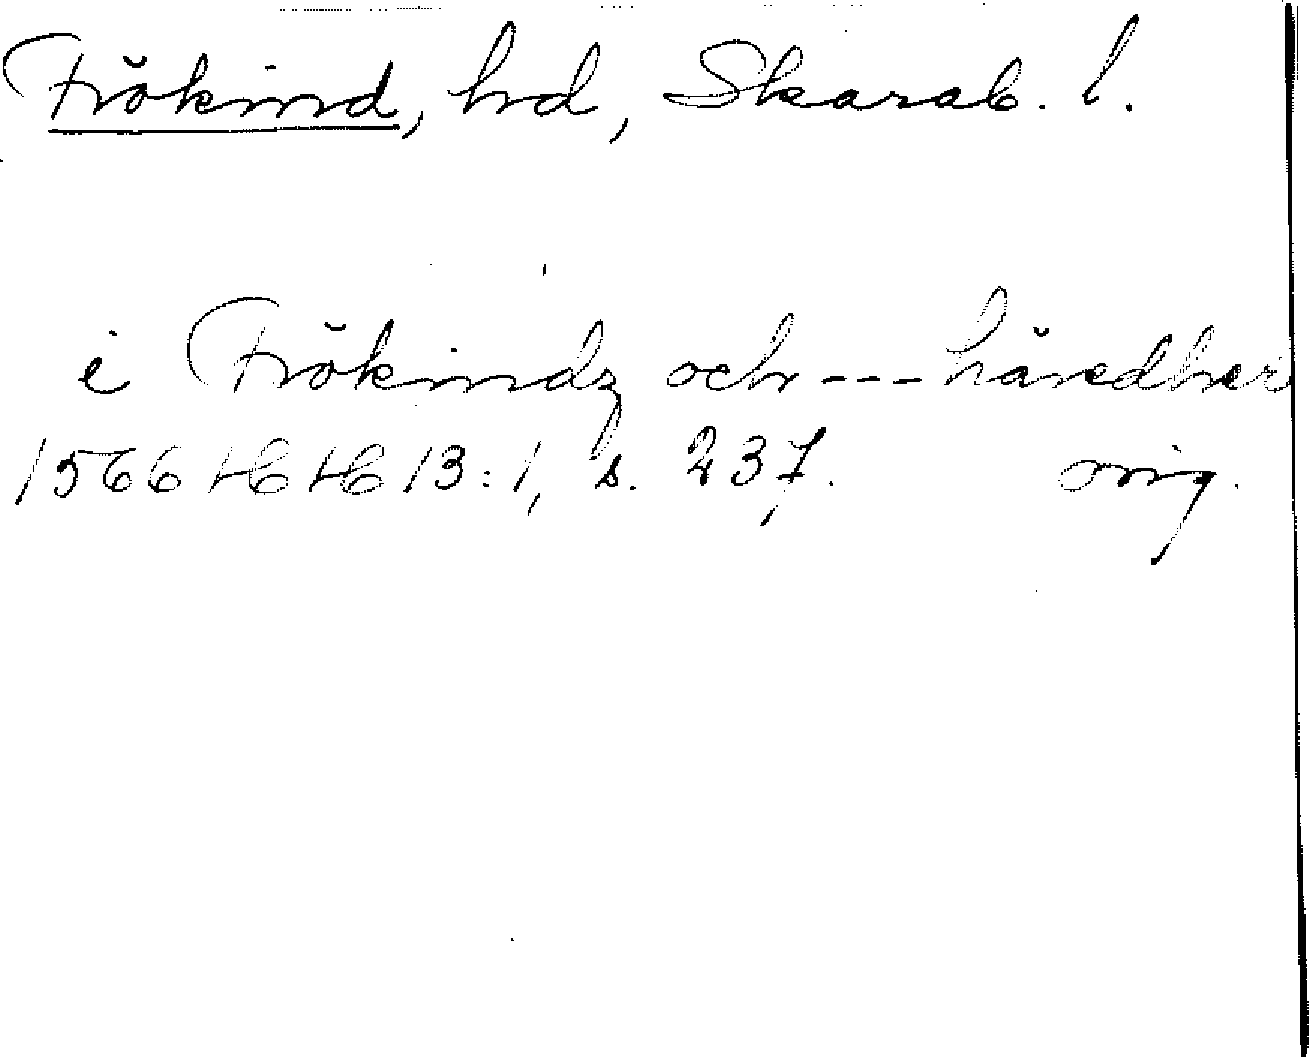 Frökind, hd, Skarab. l.
i Frökindz och --- häredher
1566 HH 13:1, s. 237. orig.